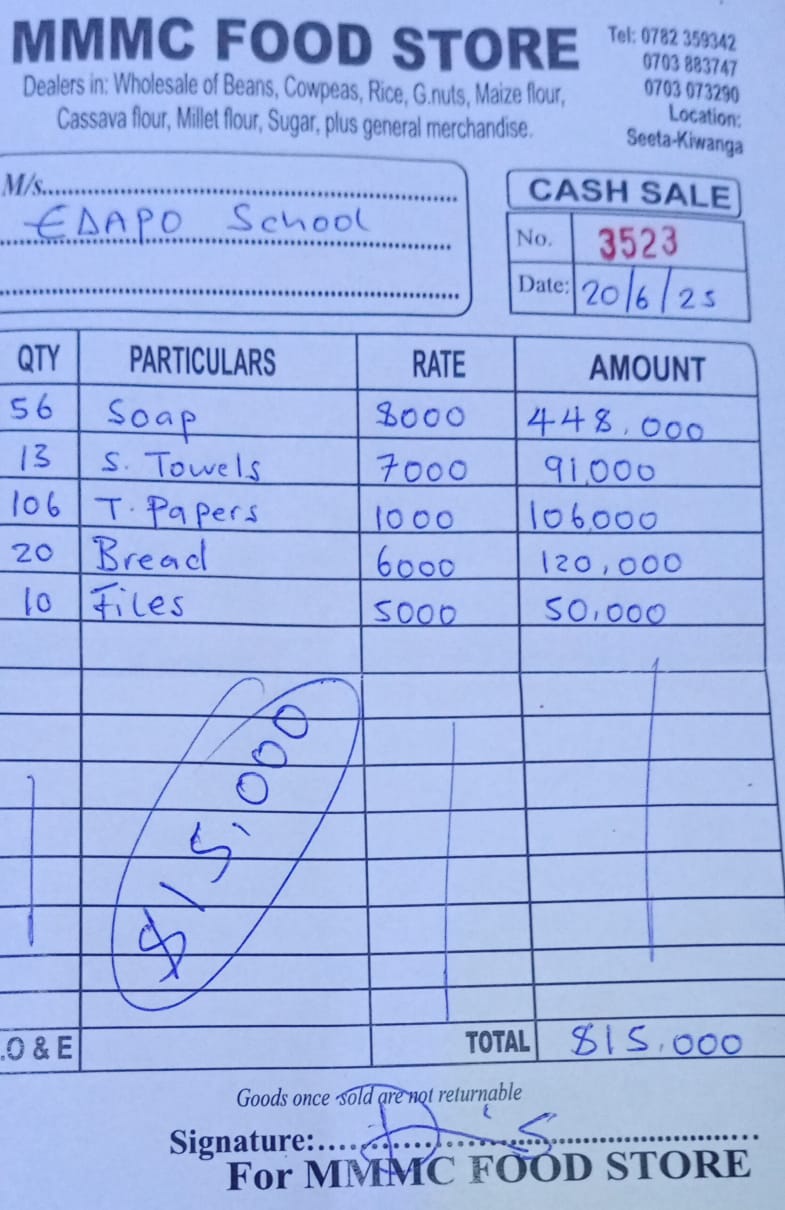 MMMC FOOD STORE
Dealers in: Wholesale of Beans, Cowpeas, Rice, G.nuts, Maize flour,
Cassava flour, Millet flour, Sugar, plus general merchandise.
Tel: 0782 359342
0703 883747
0703 073290
Location:
Seeta-Kiwanga
M/s
EDAPO School
CASH SALE
No. 3523
Date: 20/6/25
QTY PARTICULARS RATE AMOUNT
56 Soap 8000 448,000
13 S. Towels 7000 91,000
106 T. Papers 1000 106,000
20 Bread 6000 120,000
10 Files 5000 50,000
815,000
.O & E TOTAL 815,000
Goods once sold are not returnable
Signature:
For MMMC FOOD STORE